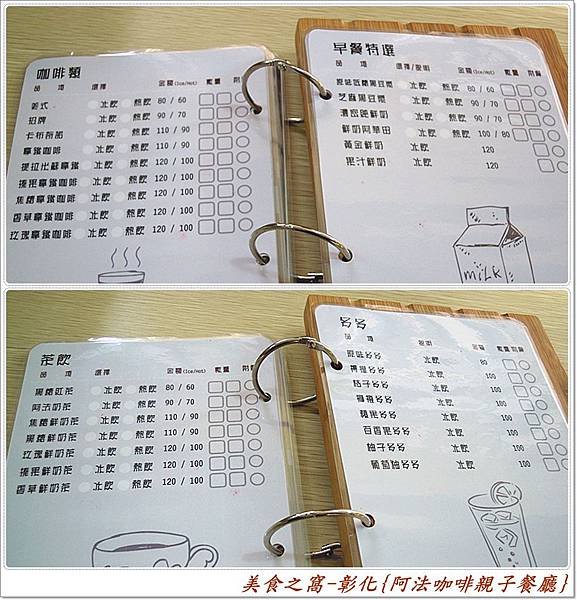 咖啡類
品項 選擇 金額(Ice/Hot) 數量 附餐
美式 冰飲 熱飲 80 / 60
招牌 冰飲 熱飲 90 / 70
卡布奇諾 冰飲 熱飲 110 / 90
拿鐵咖啡 冰飲 熱飲 110 / 90
提拉米蘇拿鐵 冰飲 熱飲 120 / 100
榛果拿鐵咖啡 冰飲 熱飲 120 / 100
焦糖拿鐵咖啡 冰飲 熱飲 120 / 100
香草拿鐵咖啡 冰飲 熱飲 120 / 100
玫瑰拿鐵咖啡 冰飲 熱飲 120 / 100
早餐特選
品項 選擇/說明 金額(Ice/Hot) 數量 附餐
原味低糖黑豆漿 冰飲 熱飲 80 / 60
芝麻黑豆漿 冰飲 熱飲 90 / 70
濃郁純鮮奶 冰飲 熱飲 90 / 70
鮮奶阿華田 冰飲 熱飲 100 / 80
黃金鮮奶 冰飲 120
果汁鮮奶 冰飲 120
milk
茶飲
品項 選擇 金額(Ice/Hot) 數量 附餐
黑糖紅茶 冰飲 熱飲 80 / 60
阿法奶茶 冰飲 熱飲 90 / 70
焦糖鮮奶茶 冰飲 熱飲 110 / 90
黑糖鮮奶茶 冰飲 熱飲 110 / 90
玫瑰鮮奶茶 冰飲 熱飲 120 / 100
榛果鮮奶茶 冰飲 熱飲 120 / 100
香草鮮奶茶 冰飲 熱飲 120 / 100
多多
品項 說明 金額 數量 附餐
原味多多 冰飲 80
檸檬多多 冰飲 100
桔子多多 冰飲 100
冰飲 100
蘋果多多 冰飲 100
百香果多多 冰飲 100
柚子多多 冰飲 100
葡萄柚多多 冰飲 100
美食之窩-彰化{阿法咖啡親子餐廳}